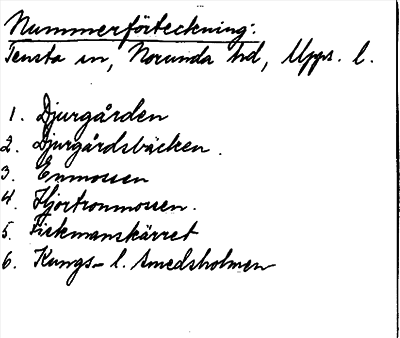 Nummerförteckning:
Tensta sn, Norunda hd, Upps. l.
1. Djurgården
2. Djurgårdsbäcken.
3. Enmossen
4. Hjortronmossen.
5. Fiskmanskärret
6. Kungs- l. Smedsholmen